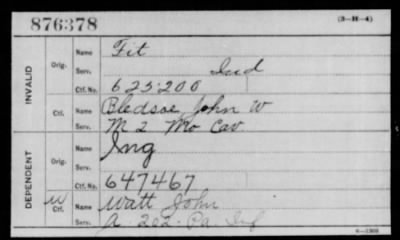 876378
(3-H-4)
INVALID
Orig.
Name Fit
Serv. Ind
Ctf. No. 625200
Ctf.
Name Bledsoe John W
Serv. M 2 Mo Cav
DEPENDENT
Orig.
Name Ing
Serv.
Ctf. No. 647467
W Ctf.
Name Watt John
Serv. A 202 Pa. Inf